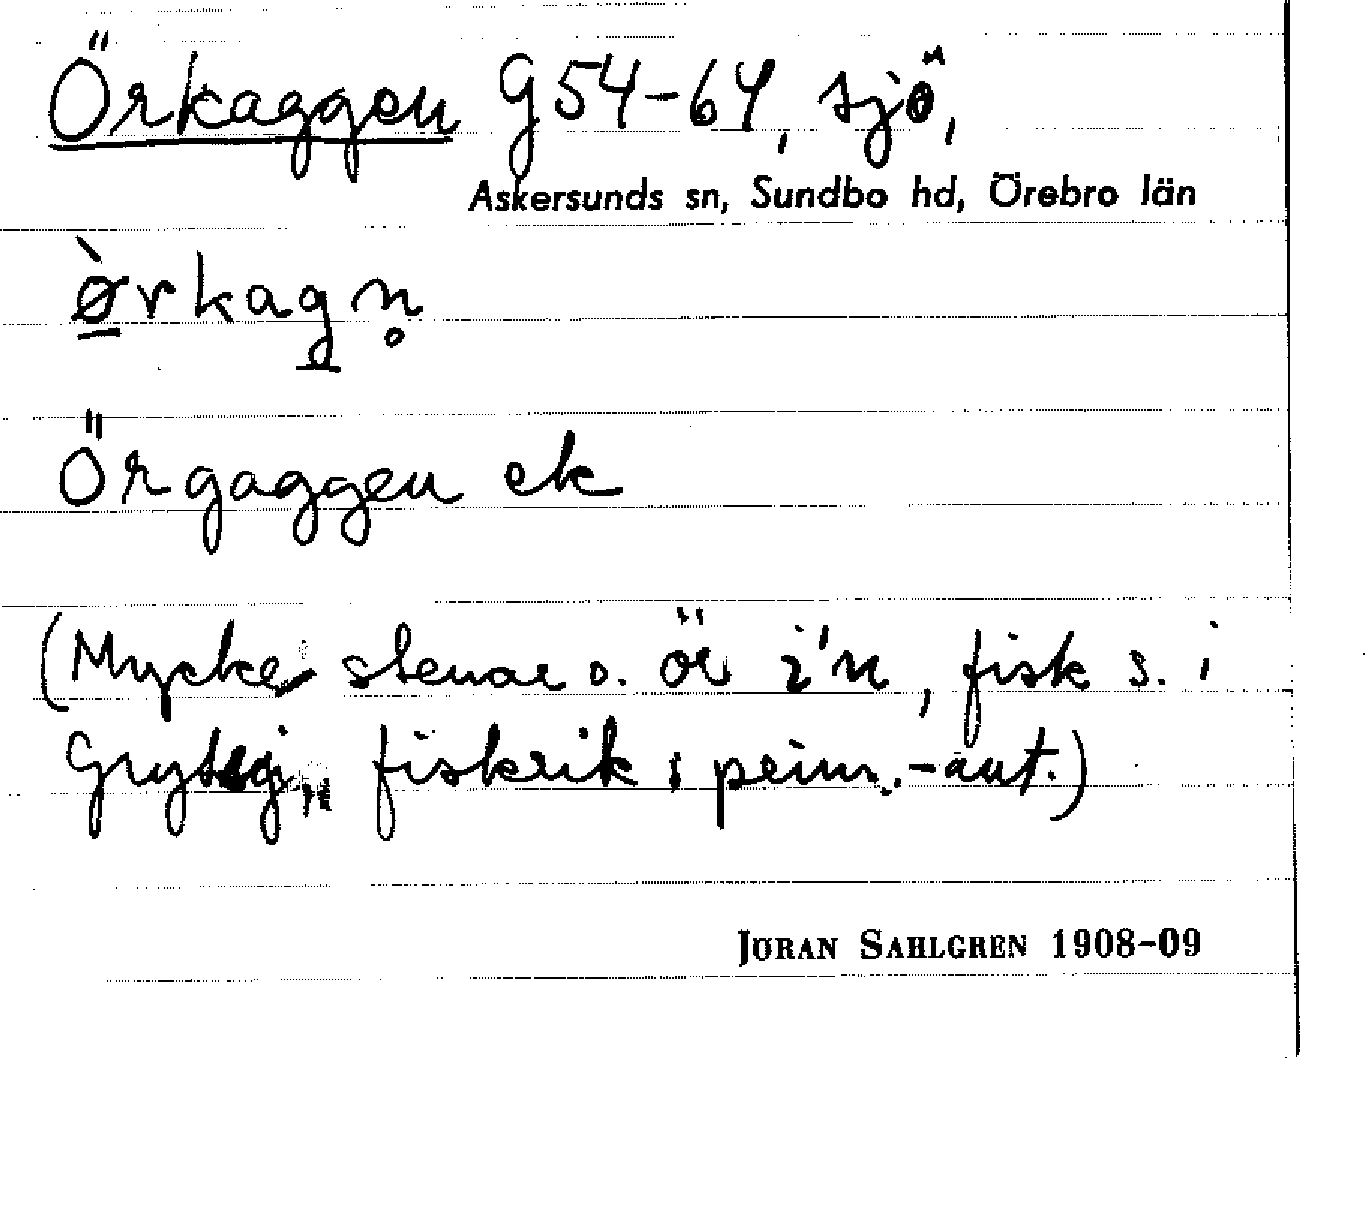 Örkaggen G54-64, sjö,
Askersunds sn, Sundbo hd, Örebro län
ø̀rkagn̥
Örgaggen ek
(Mycke stenar o. ör i'n, fisk s. i
fiskrik
JÖRAN SAHLGREN 1908-09